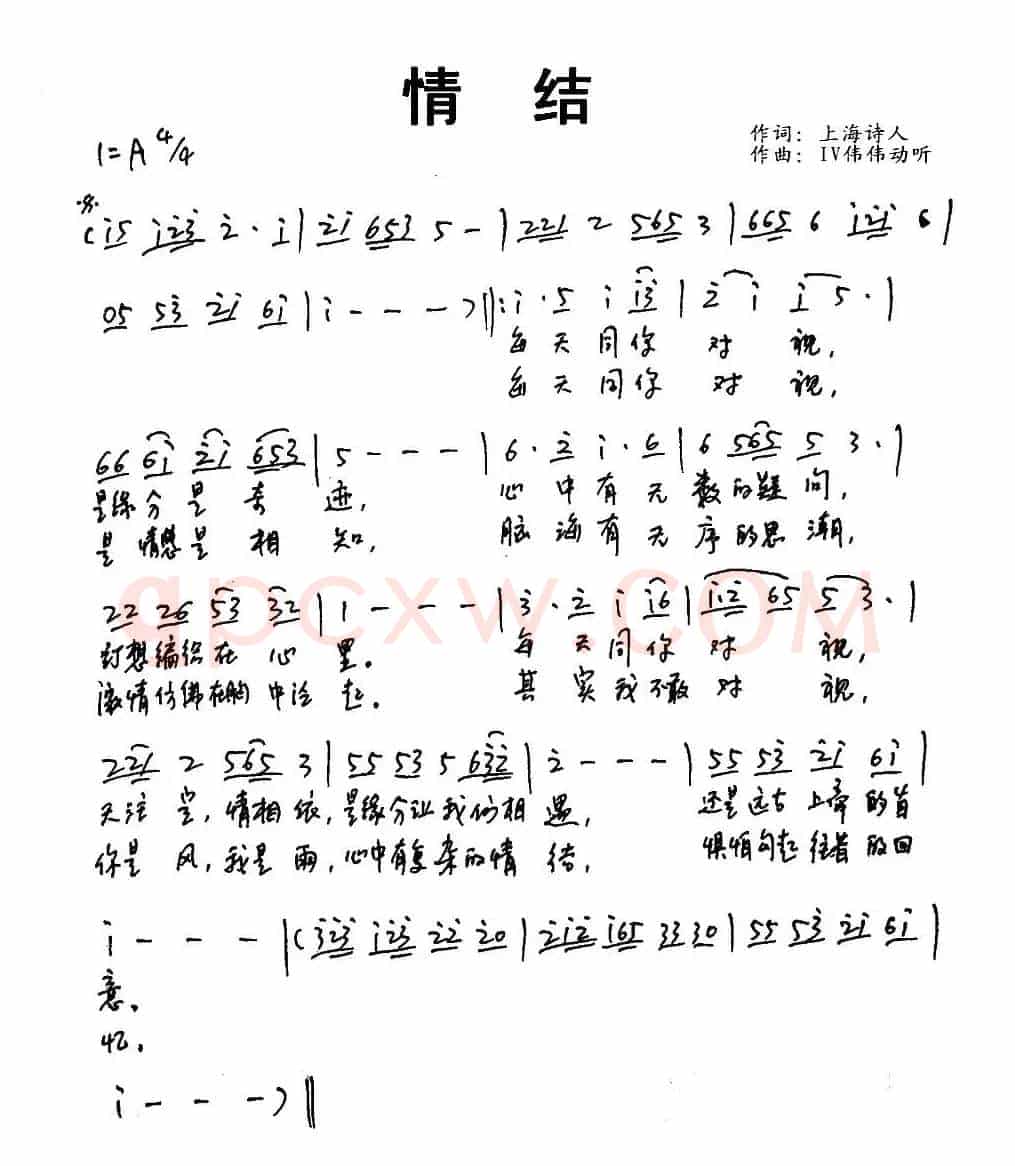 情 结
作词: 上海诗人
作曲: IV伟伟动听
1=A 4/4
(i5 i23 2· i | 2i 653 5 - | 221 2 565 3 | 665 6 i2i 6 |
05 53 2i 6i | i - - - ) ‖: i· 5 i i3 | 2 i i 5· |
每天同你 对 视,
每天同你 对 视,
66 6i 2i 653 | 5 - - - | 6· 2 i· 6 | 6 565 5 3· |
是缘分是 奇 迹, 心中有无数的疑问,
是情愁是 相 知, 脑海有无序的思潮,
22 26 53 32 | 1 - - - | 3· 2 i i6 | ii2 65 5 3· |
幻想编织在心里。 每天同你 对 视,
激情仿佛在胸中泛起。 其实我不敢对 视,
apcxw.com
221 2 565 3 | 55 53 5 632 | 2 - - - | 55 53 2i 6i |
天注定,情相依,是缘分让我们相遇, 还是远古上帝的旨
你是风,我是雨,心中有复杂的情结, 惧怕勾起往昔的回
i - - - | (323 i23 22 20 | 2i2 i65 33 30 | 55 53 2i 6i |
意。
忆。
i - - - ) ‖